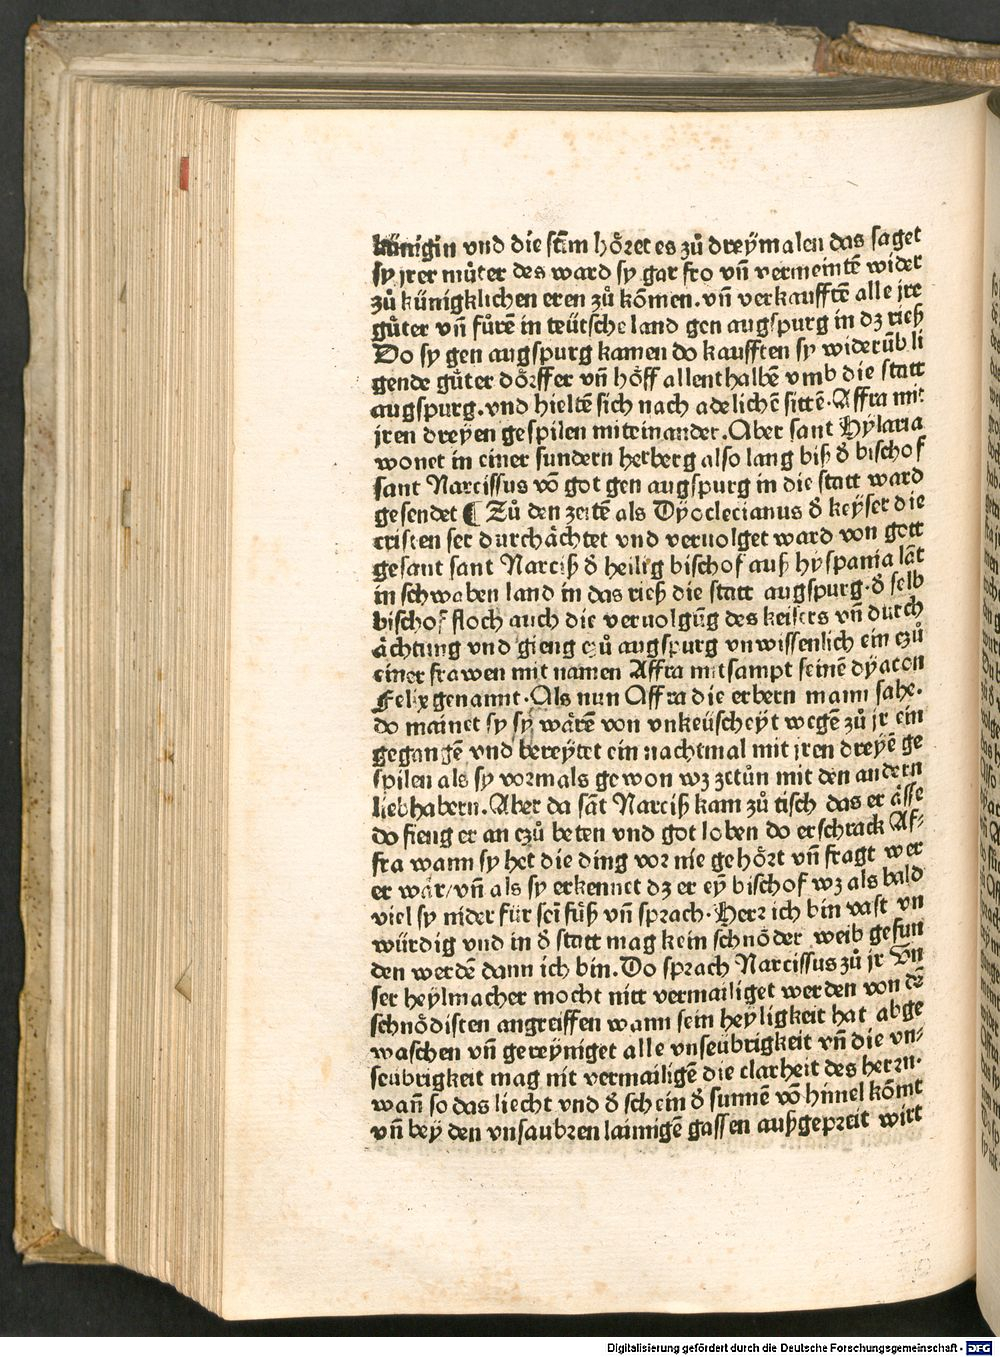 künigin vnd die stim̃ hoͤret es zuͦ dreymalen das saget
sy jrer muͦter des ward sy gar fro vñ vermeintẽ wider
zuͦ künigklichen eren zuͦ kõmen. vñ verkaufftẽ alle jre
guͤter vñ fuͦrẽ in teütsche land gen augspurg in dz rieß
Do sy gen augspurg kamen do kaufften sy widerũb li
gende guͤter doͤrffer vñ hoͤff allenthalbẽ vmb die statt
augspurg. vnd hieltẽ sich nach adelichẽ sittẽ. Affra mit
jren dreyen gespilen miteinander. Aber sant Hylaria
wonet in einer sundern herberg also lang biß d̕ bischof
sant Narcissus võ got gen augspurg in die statt ward
gesendet ¶ Zuͦ den zeitẽ als Dyoclecianus d̕ keyser die
cristen ser durchaͤchtet vnd veruolget ward von gott
gesant sant Narciß d̕ heilig bischof auß hyspania lãt
in schwaben land in das rieß die statt augspurg. d̕ selb
bischof floch auch die veruolgũg des keisers vñ durch
aͤchtung vnd gieng czuͦ augspurg vnwissenlich ein czuͦ
einer frawen mit namen Affra mitsampt seinẽ dyacon
Felix genannt. Als nun Affra die erbern mann sahe.
do mainet sy sy waͤrẽ von vnkeüscheyt wegẽ zuͦ jr ein
gegangẽ vnd bereytet ein nachtmal mit jren dreyẽ ge
spilen als sy vormals gewon wz zetuͦn mit den andern
liebhabern. Aber da sãt Narciß kam zuͦ tisch das er aͤsse
do fieng er an czuͦ beten vnd got loben do erschrack Af⸗
fra wann sy het die ding vor nie gehoͤrt vñ fragt wer
er waͤr/ vñ als sy erkennet dz er eỹ bischof wz als bald
viel sy nider für sei fuͤß vñ sprach. Herr ich bin vast vn
würdig vnd in d̕ statt mag kein schnoͤder weib gefun
den werdẽ dann ich bin. Do sprach Narcissus zuͦ jr Vn
ser heylmacher mocht nitt vermailiget werden von dẽ
schnoͤdisten angreiffen wann sein heyligkeit hat abge
waschen vñ gereyniget alle vnseübrigkeit vñ die vn⸗
seübrigkeit mag nit vermailigẽ die clarheit des herrn.
wañ so das liecht vnd d̕ schein d̕ sunnẽ võ himel kõmt
vñ bey den vnsaubren laimigẽ gassen außgepreit wirt
Digitalisierung gefördert durch die Deutsche Forschungsgemeinschaft - DFG